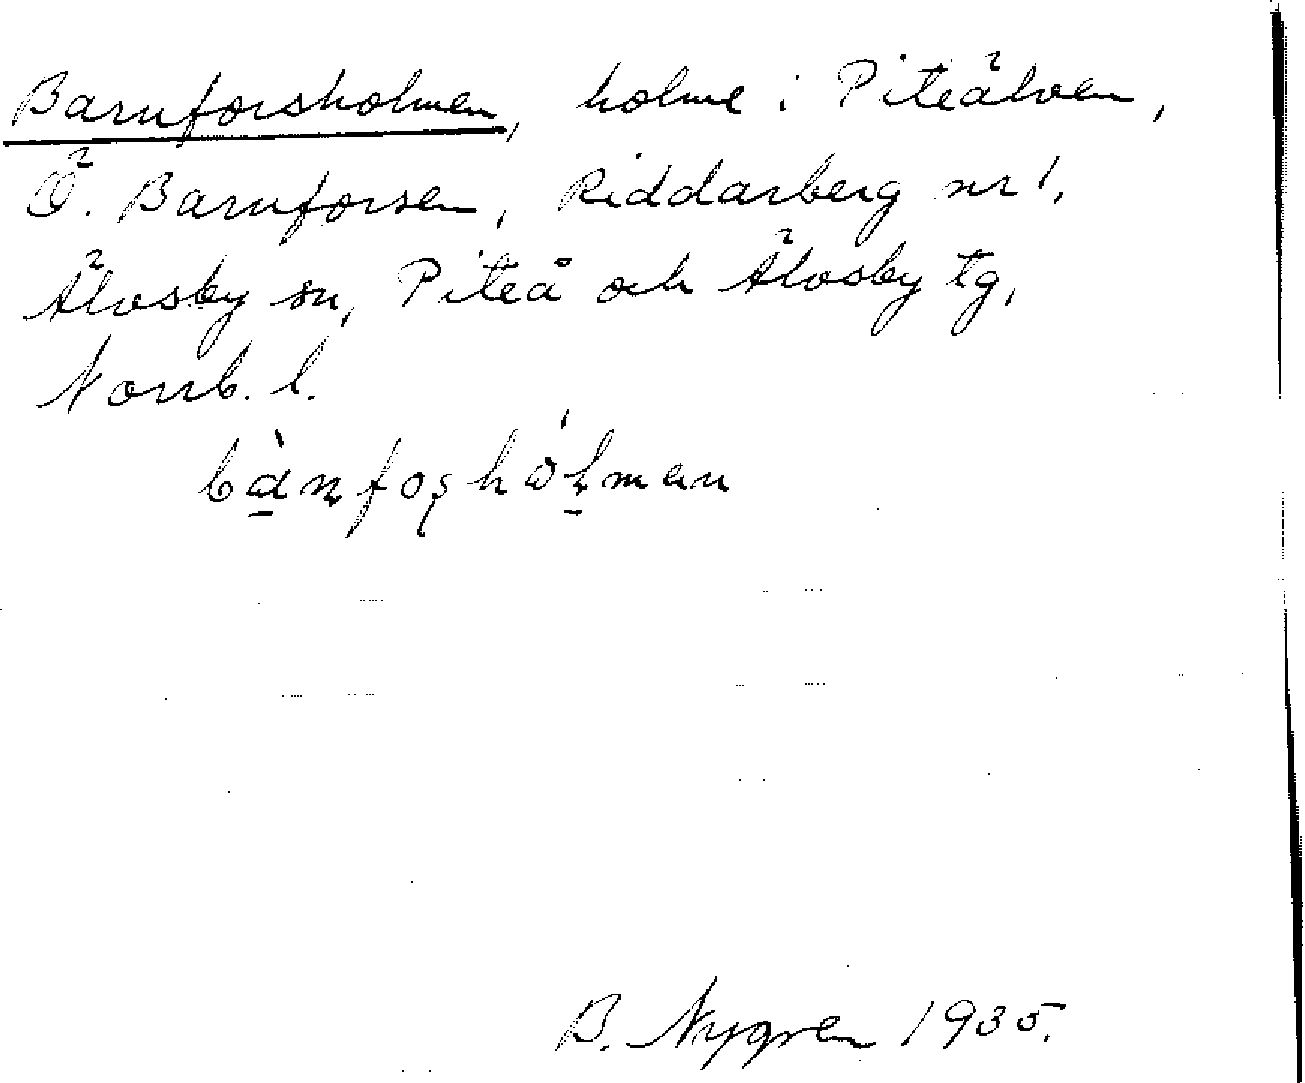 Barnforsholmen, holme i Piteälven,
Ö. Barnforsen, Riddarberg nr 1,
Älvsby sn, Piteå och Älvsby tg,
Norrb. l.
bànfoshòlmen
B. Nygren 1935.